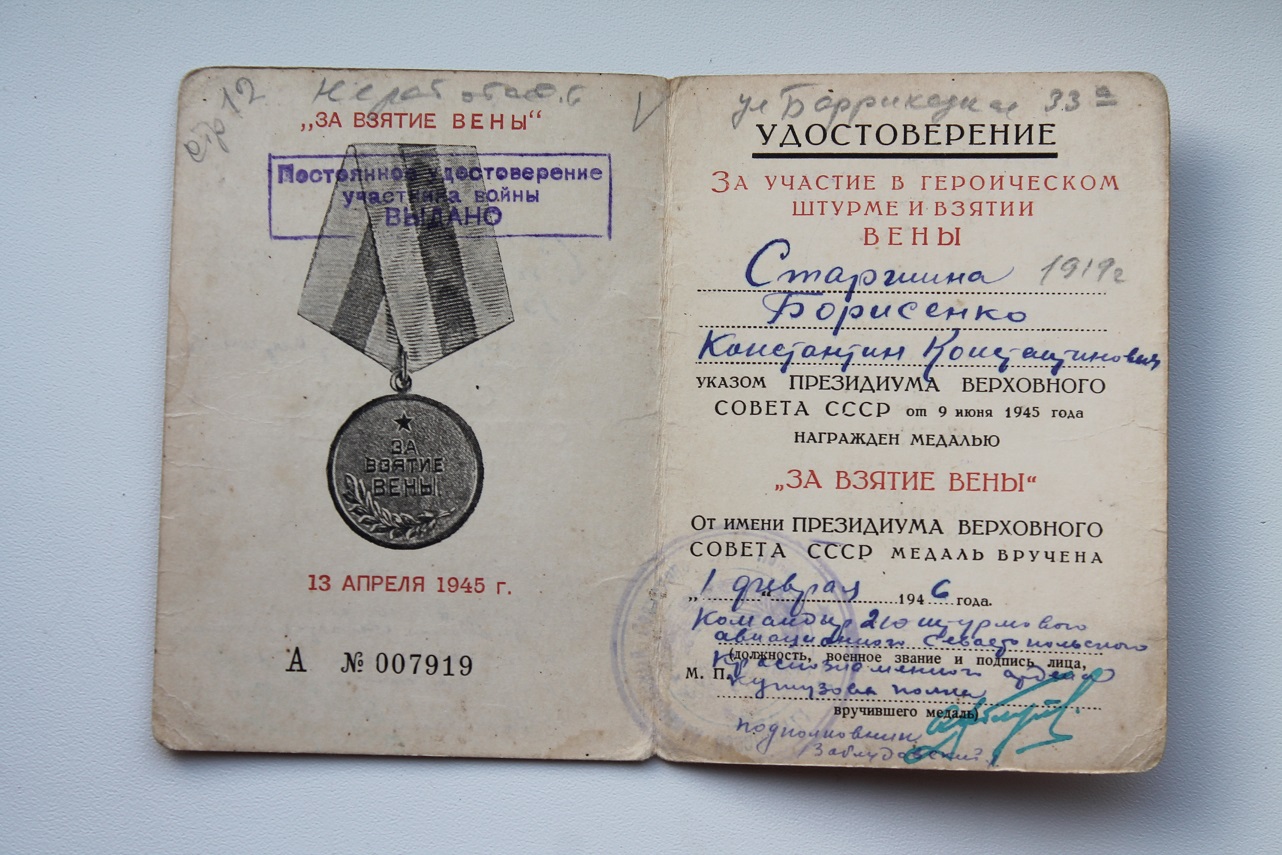 стр 12
„ЗА ВЗЯТИЕ ВЕНЫ“
Постоянное удостоверение
участника войны
ВЫДАНО
ЗА
ВЗЯТИЕ
ВЕНЫ
13 АПРЕЛЯ 1945 г.
А № 007919
ул Баррикадная 33а
УДОСТОВЕРЕНИЕ
ЗА УЧАСТИЕ В ГЕРОИЧЕСКОМ
ШТУРМЕ И ВЗЯТИИ
ВЕНЫ
Старшина 1919г
Борисенко
Константин Константинович
УКАЗОМ ПРЕЗИДИУМА ВЕРХОВНОГО
СОВЕТА СССР от 9 июня 1945 года
НАГРАЖДЕН МЕДАЛЬЮ
„ЗА ВЗЯТИЕ ВЕНЫ“
От имени ПРЕЗИДИУМА ВЕРХОВНОГО
СОВЕТА СССР МЕДАЛЬ ВРУЧЕНА
„1 февраля 1946 года.
Командир 210 штурмового
авиационного Севастопольского
(должность, военное звание и подпись лица,
Краснознаменного ордена
М. П.
Кутузова полка
вручившего медаль)
подполковник
Заблудовский